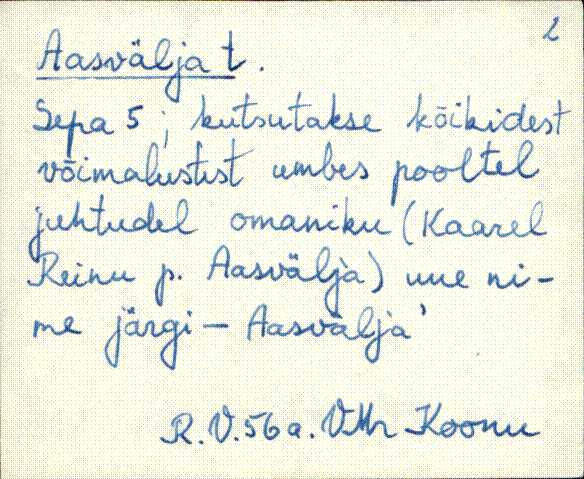 2
Aasvälja t.
Sepa 5; kutsutakse kõikidest
võimalustest umbes pooltel
juhtudel omaniku (Kaarel
Reinu p. Aasvälja) uue ni-
me järgi – Aasvälja'
R.V. 56 a. VMr Koonu